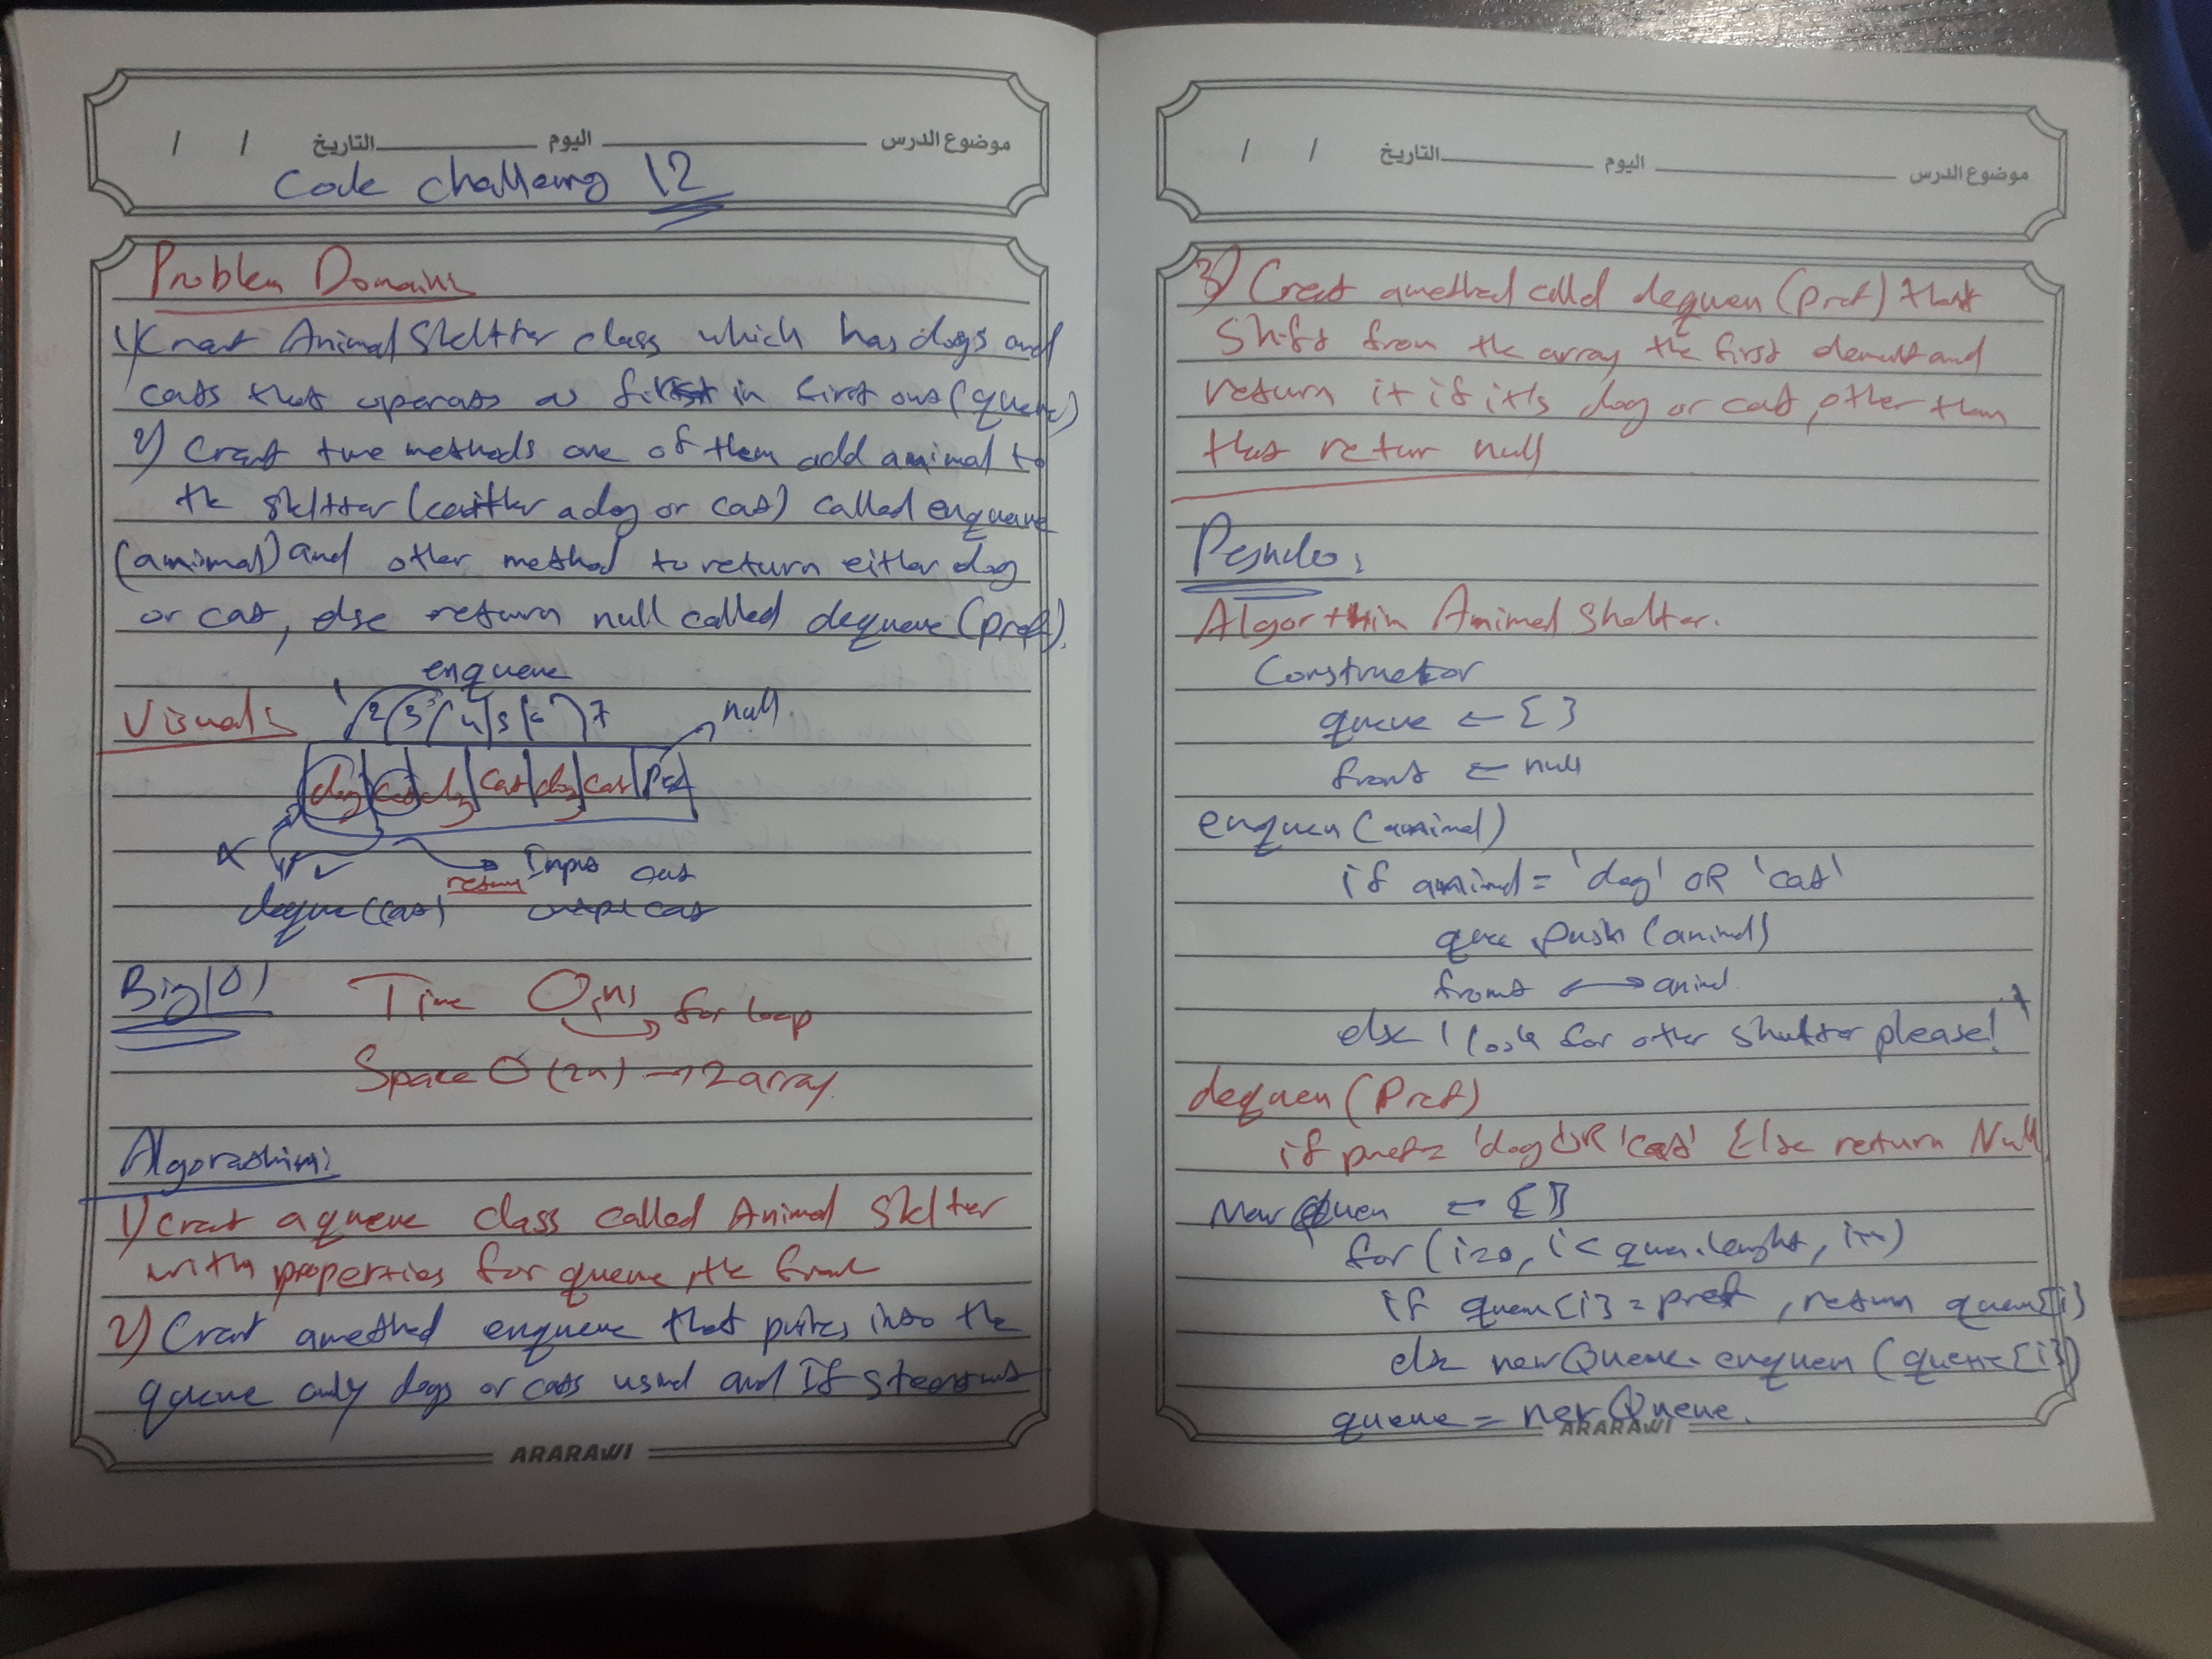 التاريخ اليوم موضوع الدرس
Code challeng 12
Problem Domain
1) Creat Animal Shelter class which has dogs and
cats that operats as first in first out (queue)
2) Creat two methods one of them add animal to
the shelter (either a dog or cat) called enqueue
(animal) and other method to return either dog
or cat, else return null called dequeue (pref).
enqueue
Visuals
1 2 3 4 5 6 7 null
dog cat dog cat dog cat
input cat
return
deque(cat) cat
Big(O) Time O(n) for loop
Space O(2n) → 2 array
Algorathim:
1) Creat a queue class called Animal Shelter
with properties for queue, the front
2) Creat a method enqueue that pushes into the
queue only dogs or cats using and if statement
ARARAWI
التاريخ اليوم موضوع الدرس
3) Creat a method calld dequeu (pref) that
Shift from the array the first elemnt and
return it if it's dog or cat, other than
that retur null
Algorthim Animel Shelter.
Constructor
queue ← []
front ← null
enqueu (animel)
if animal = 'dog' OR 'cat'
queue.push (animal)
front ← animl
else 'look for other shelter please!'
dequeu (Pref)
if pref = 'dog' OR 'cat' Else return Null
New Queu ← []
for (i=0, i< queu.lenght, i++)
if queu[i] = pref, return queue[i]
else newQueue.enqueu (queue[i])
queue = newQueue.
ARARAWI